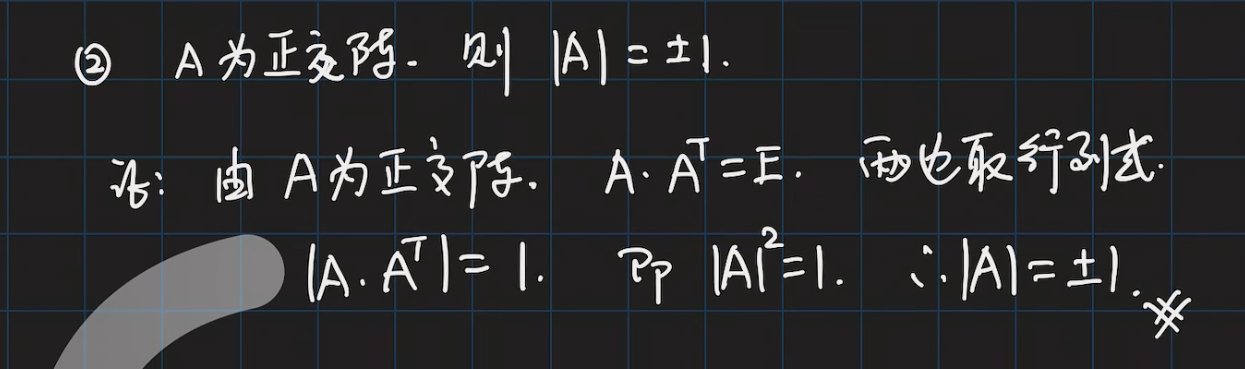 ② A为正交阵. 则 |A|=±1.
证: 由 A为正交阵. A·Aᵀ=E. 两边取行列式.
|A·Aᵀ|=1. 即 |A|²=1. ∴|A|=±1.